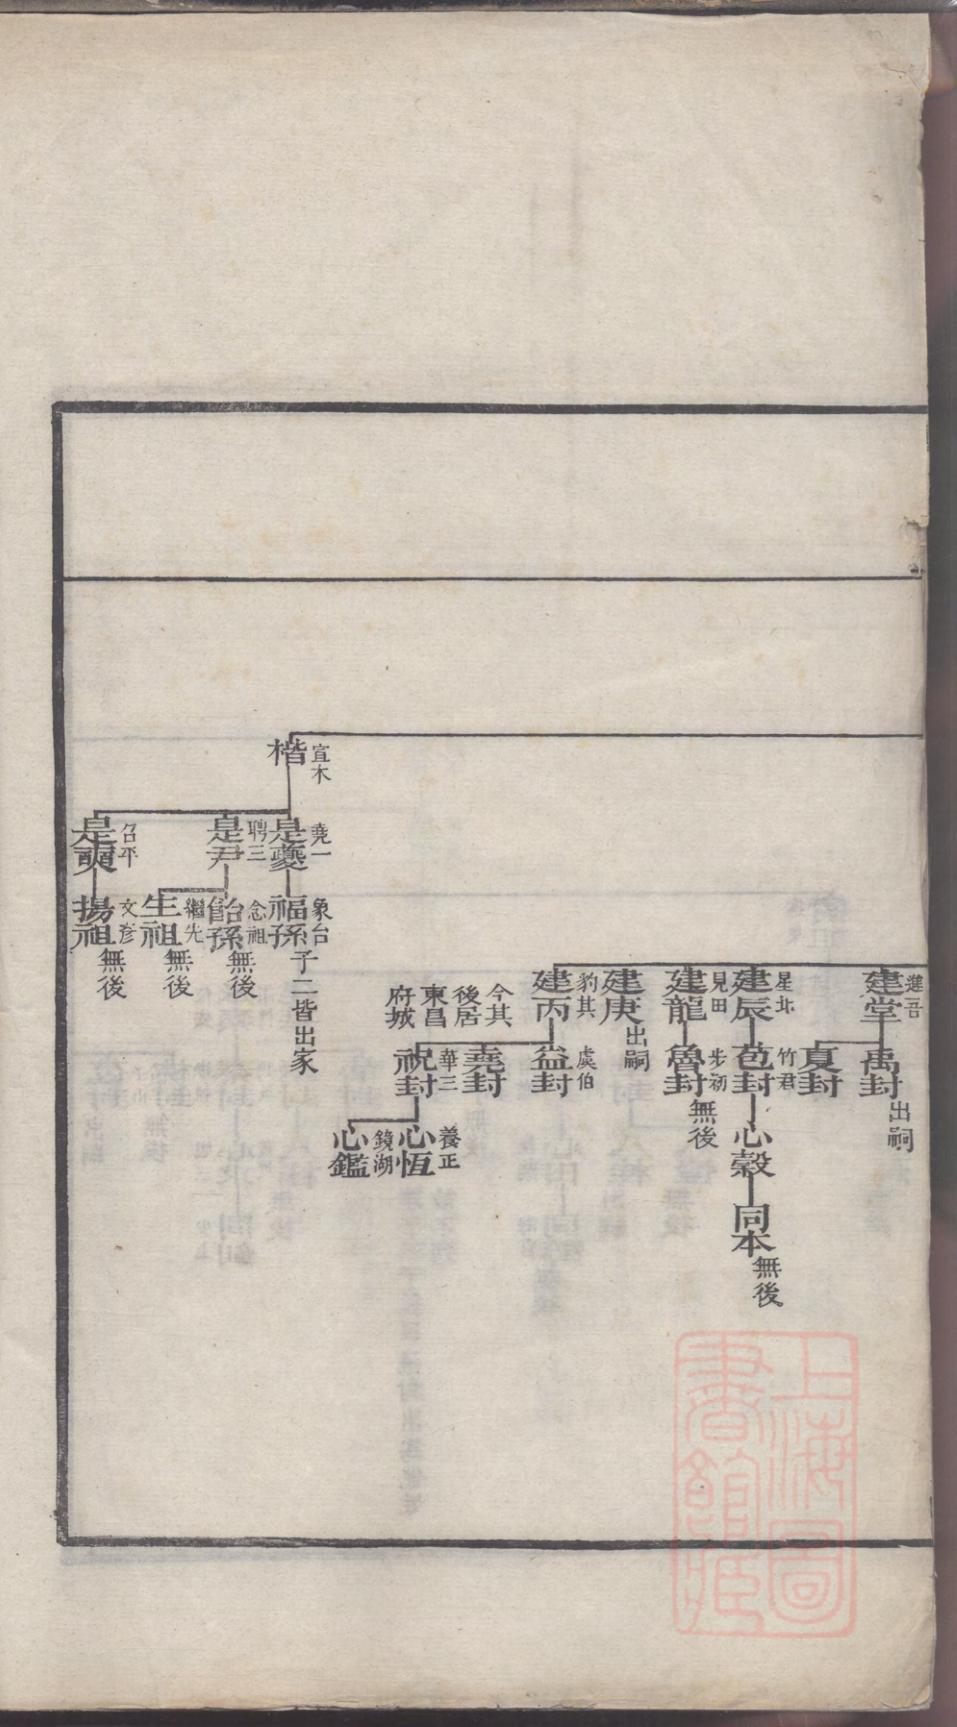 進吾
建堂
禹封
出嗣
夏封
星北
建辰
竹君
芭封
心榖
同本
無後
見田
建龍
步初
魯封
無後
建庚
出嗣
豹其
建丙
虞伯
益封
堯封
今其
後居
東昌
府城
華三
祝封
養正
心恆
鏡湖
心鑑
宜木
楷
堯一
是夔
象台
福孫
子二皆出家
聘三
是尹
念祖
飴孫
無後
繼先
生祖
無後
召平
是奭
文彦
揚祖
無後
上海圖
書館藏